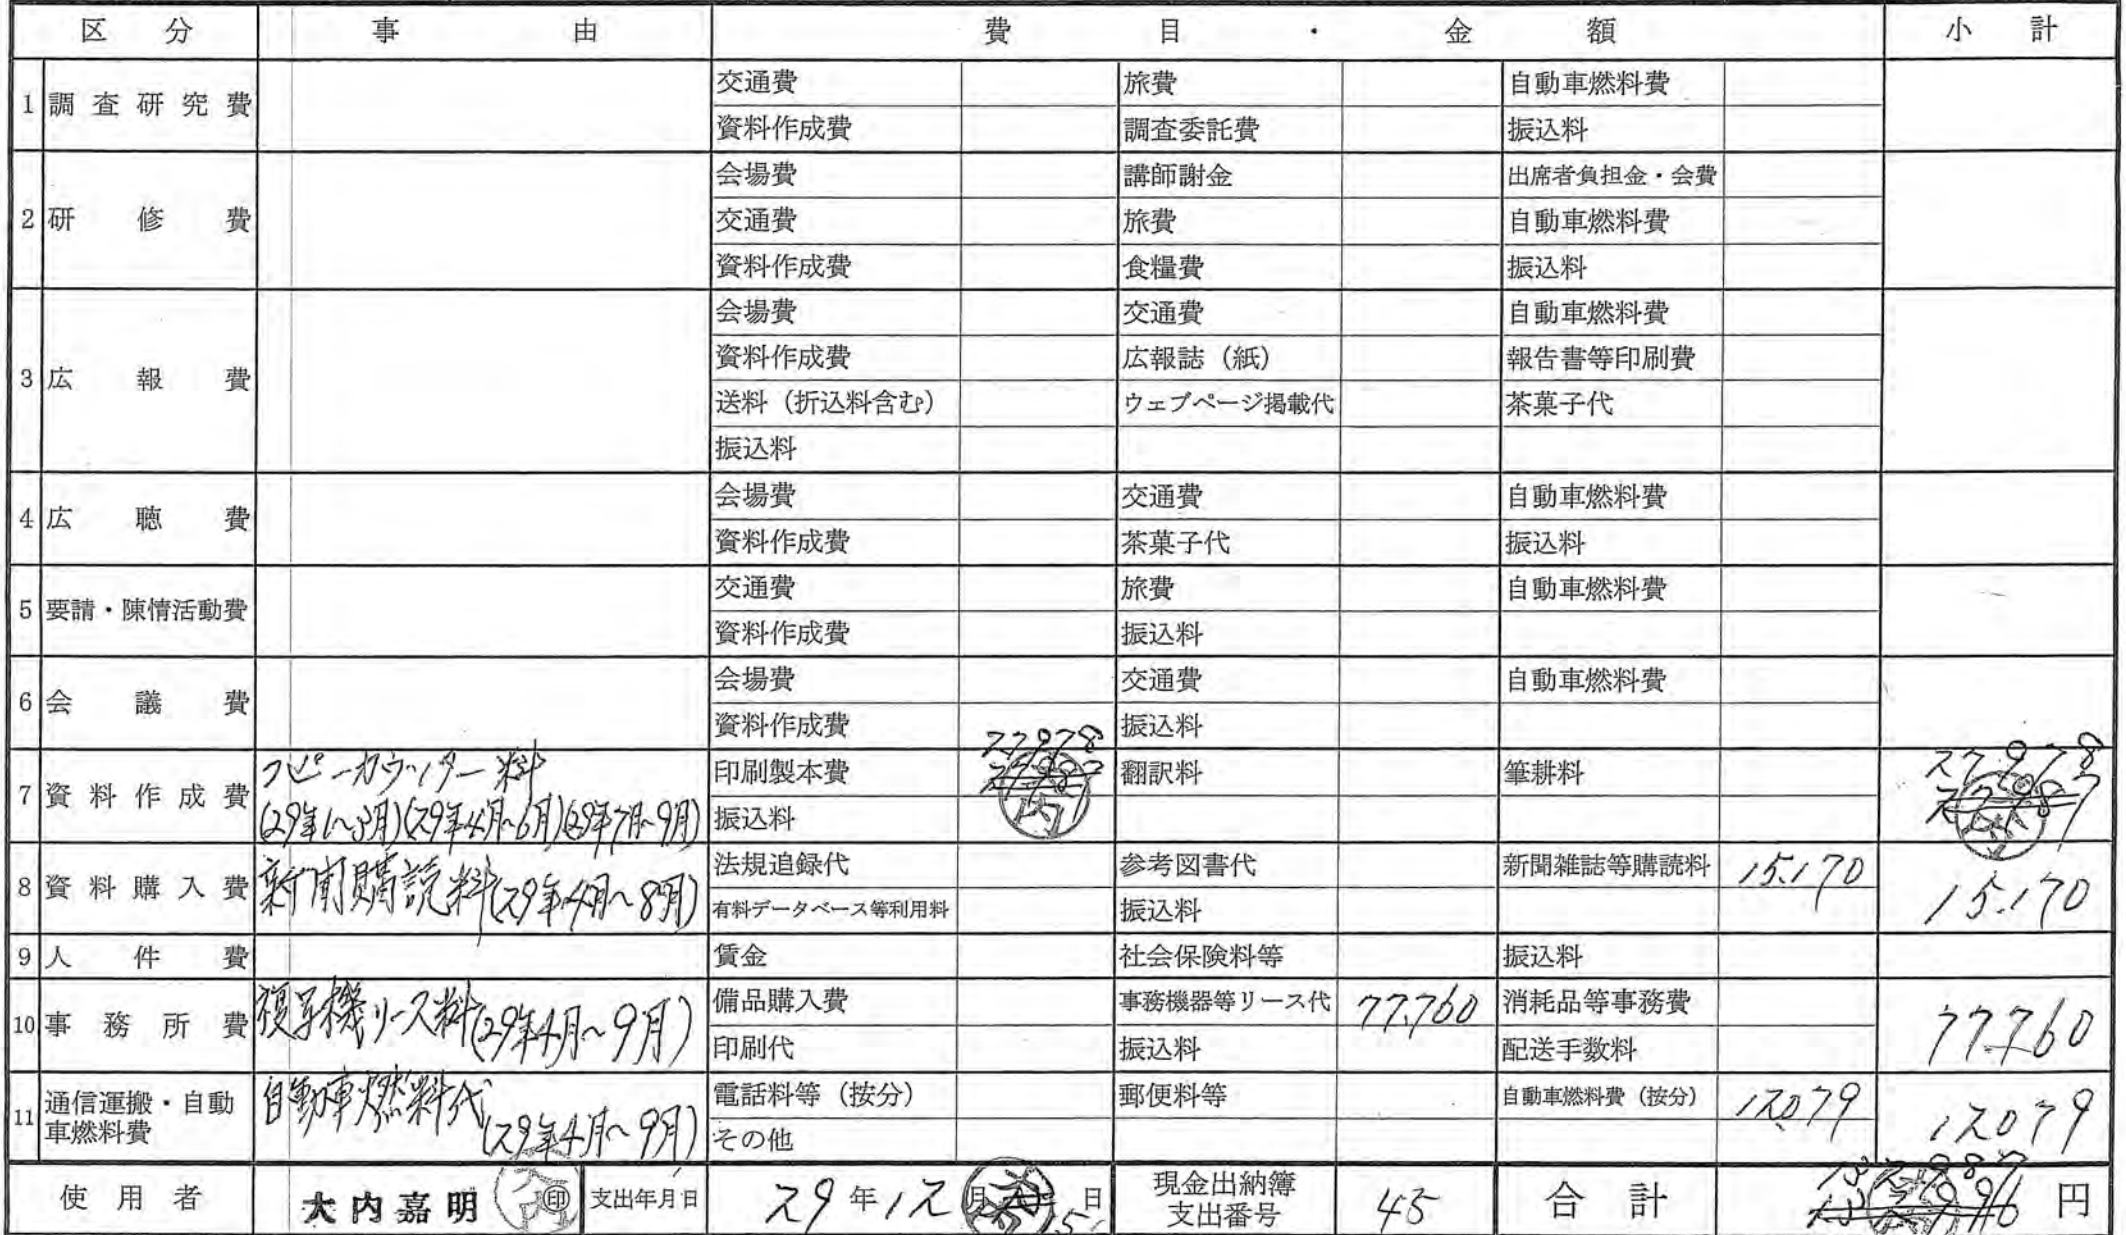 区 分 事 由 費 目 ・ 金 額 小 計
1 調査研究費 交通費 旅費 自動車燃料費
資料作成費 調査委託費 振込料
2 研修費 会場費 講師謝金 出席者負担金・会費
交通費 旅費 自動車燃料費
資料作成費 食糧費 振込料
3 広報費 会場費 交通費 自動車燃料費
資料作成費 広報誌(紙) 報告書等印刷費
送料(折込料含む) ウェブページ掲載代 茶菓子代
振込料
4 広聴費 会場費 交通費 自動車燃料費
資料作成費 茶菓子代 振込料
5 要請・陳情活動費 交通費 旅費 自動車燃料費
資料作成費 振込料
6 会議費 会場費 交通費 自動車燃料費
資料作成費 振込料
27978 27978
7 資料作成費 コピーカウンター料 印刷製本費 27987 翻訳料 筆耕料 27987
(29年1~3月)(29年4月~6月)(29年7月~9月) 振込料
8 資料購入費 新聞購読料(29年4月~8月) 法規追録代 参考図書代 新聞雑誌等購読料 15.170 15.170
有料データベース等利用料 振込料
9 人件費 賃金 社会保険料等 振込料
10 事務所費 複写機リース料(29年4月~9月) 備品購入費 事務機器等リース代 77.760 消耗品等事務費 77.760
印刷代 振込料 配送手数料
11 通信運搬・自動車燃料費 自動車燃料代 電話料等(按分) 郵便料等 自動車燃料費(按分) 12.079 12079
(29年4月~9月) その他
132987
使用者 大内嘉明 印 支出年月日 29年12月 日 現金出納簿支出番号 45 合計 132996 円